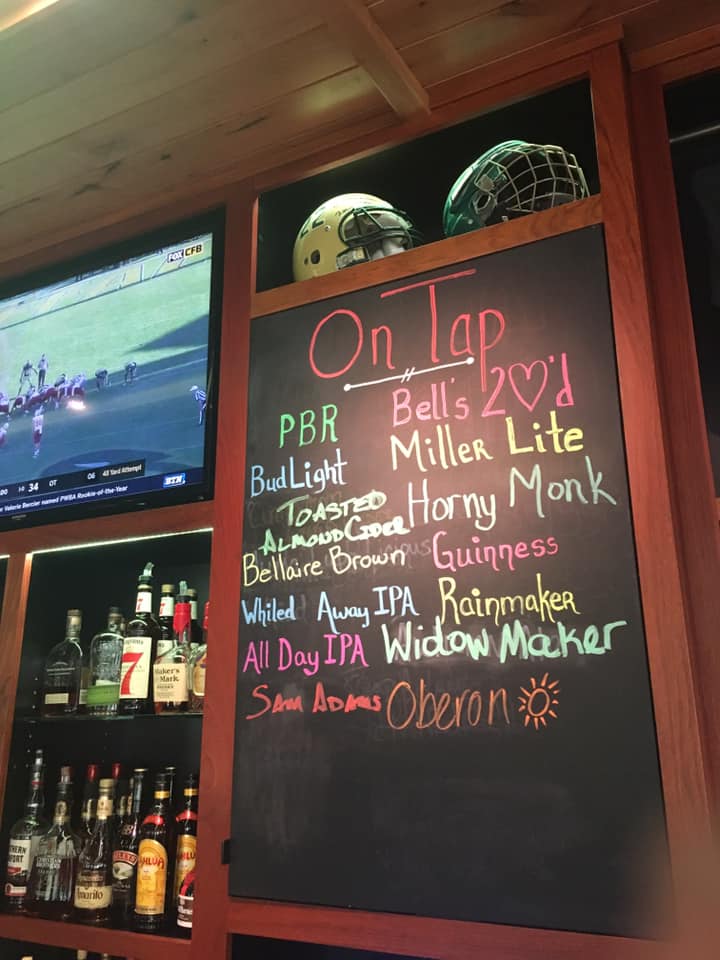 FOX CFB
On Tap
PBR
Bell's 2♡'d
Bud Light
Miller Lite
Toasted
Almond Cider
Horny Monk
Bellaire Brown
Guinness
Whiled Away IPA
Rainmaker
All Day IPA
Widow Maker
Sam Adams
Oberon
34 OT 06 48 Yard Attempt
Valerie Bercier named PWBA Rookie-of-the-Year
BTN
7
Maker's
Mark
Amarito
KAHLUA